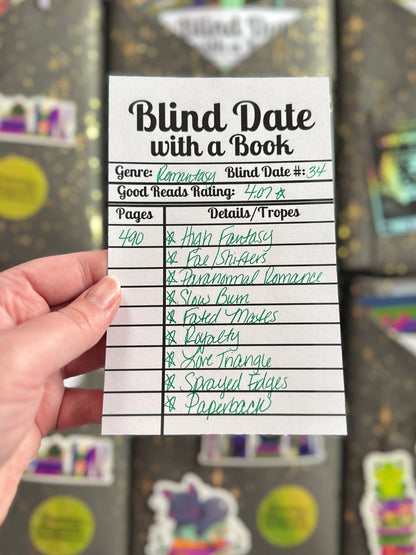 Blind Date
with a Book
Blind Date
with a Book
Genre: Romantasy Blind Date #: 34
Good Reads Rating: 4.07 ☆
Pages Details/Tropes
490 ☆ High Fantasy
☆ Fae/Shifters
☆ Paranormal Romance
☆ Slow Burn
☆ Fated Mates
☆ Royalty
☆ Love Triangle
☆ Sprayed Edges
☆ Paperback